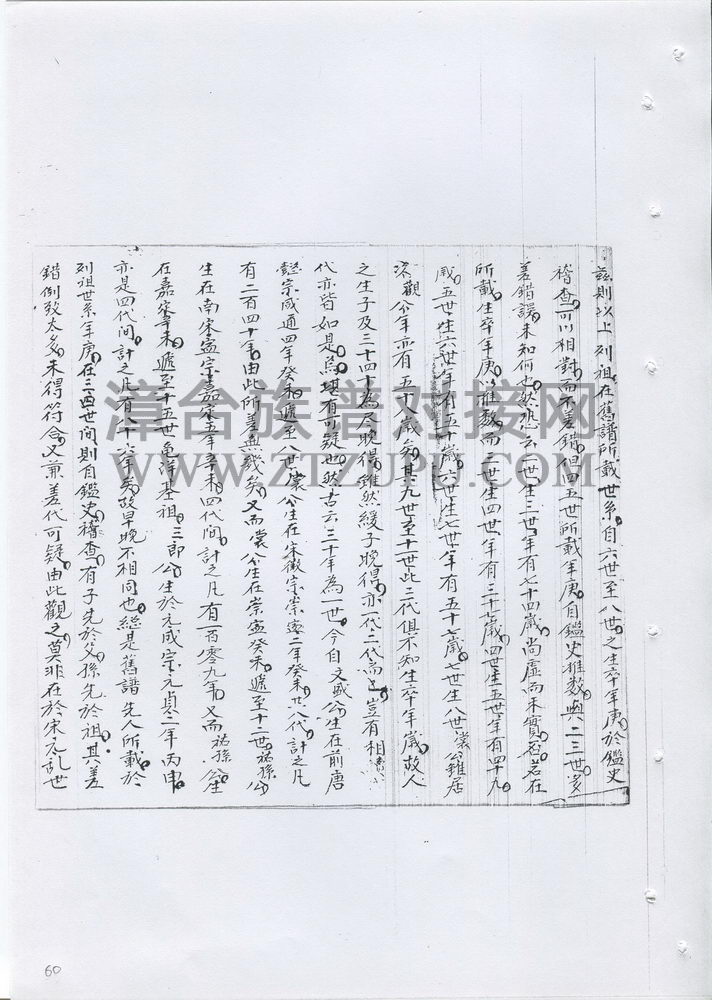 茲則以上列祖在舊譜所載世系自六世至八世之生卒年庚於鑑史
稽查可以相對而不差錯但四五世所載年庚自鑑史推数與二三世多
差錯誤未知何也然恐云二世生三世年有七十四歲尚虛而未實否若在
所載生卒年庚以推数而三世生四世年有三十七歲四世生五世年有四十九
歲五世生六世年有五十歲六世生七世年有五十七歲七世生八世棠公雖居
次觀公年亦有五歲矣其九世至十一世此三代俱不知生卒年歲故人
之生子及三十四十為之晚得雖然緩子晚得亦一代二代為是豈有相
代亦皆如是焉有可疑也然古云三十年為一世今自文盛公生在前唐
懿宗咸通四年癸未遞至八世棠公生在宋徽宗崇寧二年癸未共八代計之凡
有二百四十年由此所差無幾矣又而棠公生在崇寧癸未遞至十二世孫公
生在南宋寧宗嘉定五年辛未四代間計之凡有一百零九年又而孫公生
在嘉定辛未遞至十五世龜洋基祖三郎公生於元成宗元貞二年丙申
亦是四代間計之凡有八十六年矣故早晚不相同也總是舊譜先人所載於
列祖世系年庚在三四世間則自鑑史稽查有子先於父孫先於祖其差
錯例致太多未得符合又兼差代可疑由此觀之莫非在於宋元乱世
漳台族谱对接网
WWW.ZTZUPU.COM
60